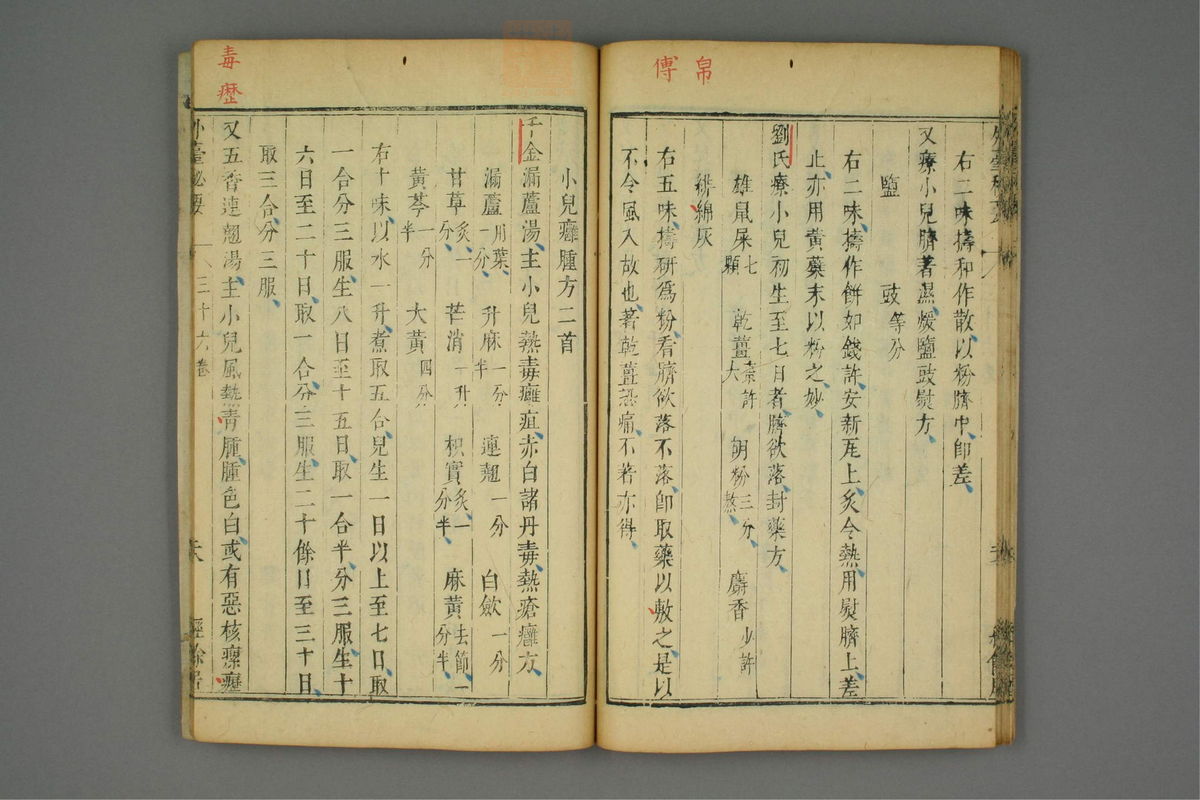 帛
傅
右二味擣和作散以粉臍中即差
又療小兒臍著濕煖鹽豉熨方
鹽 豉等分
右二味擣作餅如錢許安新瓦上炙令熱用熨臍上差
止亦用黃蘗末以粉之妙
劉氏療小兒初生至七日者臍欲落封藥方
雄鼠屎七顆 乾薑棗許大 胡粉三分熬 麝香少許
緋綿灰
右五味擣研爲粉看臍欲落不落即取藥以敷之是以
不令風入故也著乾薑恐痛不著亦得
毒
癧
小兒癰腫方二首
千金漏蘆湯主小兒熱毒癰疽赤白諸丹毒熱瘡癰方
漏蘆用葉一分 升麻一分半 連翹一分 白斂一分
甘草炙一分 芒消一升 枳實炙一分半 麻黃去節一分半
黃芩一分半 大黃四分
右十味以水一升煮取五合兒生一日以上至七日取
一合分三服生八日至十五日取一合半分三服生十
六日至二十日取一合分三服生二十餘日至三十日
取三合分三服
又五香連翹湯主小兒風熱青腫腫色白或有惡核瘰癧
外臺秘要 三十六卷 經餘居